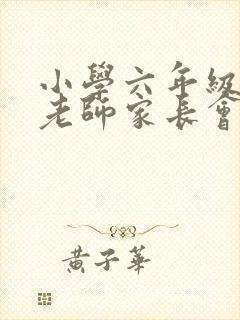 小學六年級
老師家長會
黃子華